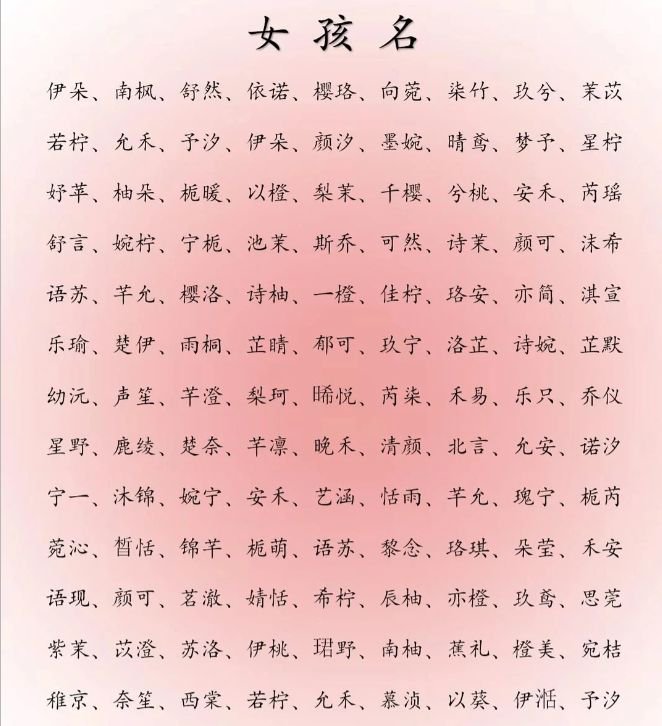 女孩名
伊朵、南枫、舒然、依诺、樱珞、向菀、柒竹、玖兮、茉苡
若柠、允禾、予汐、伊朵、颜汐、墨婉、晴鸢、梦予、星柠
妤苹、柚朵、栀暖、以橙、梨茉、千樱、兮桃、安禾、芮瑶
舒言、婉柠、宁栀、池茉、斯乔、可然、诗茉、颜可、沫希
语苏、芊允、樱洛、诗柚、一橙、佳柠、珞安、亦简、淇宣
乐瑜、楚伊、雨桐、芷晴、郁可、玖宁、洛芷、诗婉、芷默
幼沅、声笙、芊澄、梨珂、晞悦、芮柒、禾易、乐只、乔仪
星野、鹿绫、楚奈、芊凛、晚禾、清颜、北言、允安、诺汐
宁一、沐锦、婉宁、安禾、艺涵、恬雨、芊允、瑰宁、栀芮
菀沁、皙恬、锦芊、栀萌、语苏、黎念、珞琪、朵莹、禾安
语现、颜可、茗澈、婧恬、希柠、辰柚、亦橙、玖鸢、思莞
紫茉、苡澄、苏洛、伊桃、珺野、南柚、蕉礼、橙美、宛桔
稚京、奈笙、西棠、若柠、允禾、慕浈、以葵、伊湉、予汐